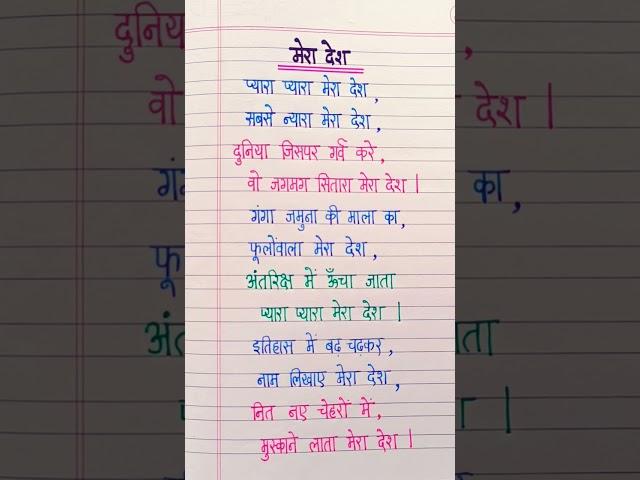 मेरा देश
प्यारा प्यारा मेरा देश,
सबसे न्यारा मेरा देश,
दुनिया जिसपर गर्व करे,
वो जगमग सितारा मेरा देश ।
गंगा जमुना की माला का,
फूलोंवाला मेरा देश,
अंतरिक्ष में ऊँचा जाता
प्यारा प्यारा मेरा देश ।
इतिहास में बढ़ चढ़कर,
नाम लिखाए मेरा देश,
नित नए चेहरों में,
मुस्काने लाता मेरा देश ।